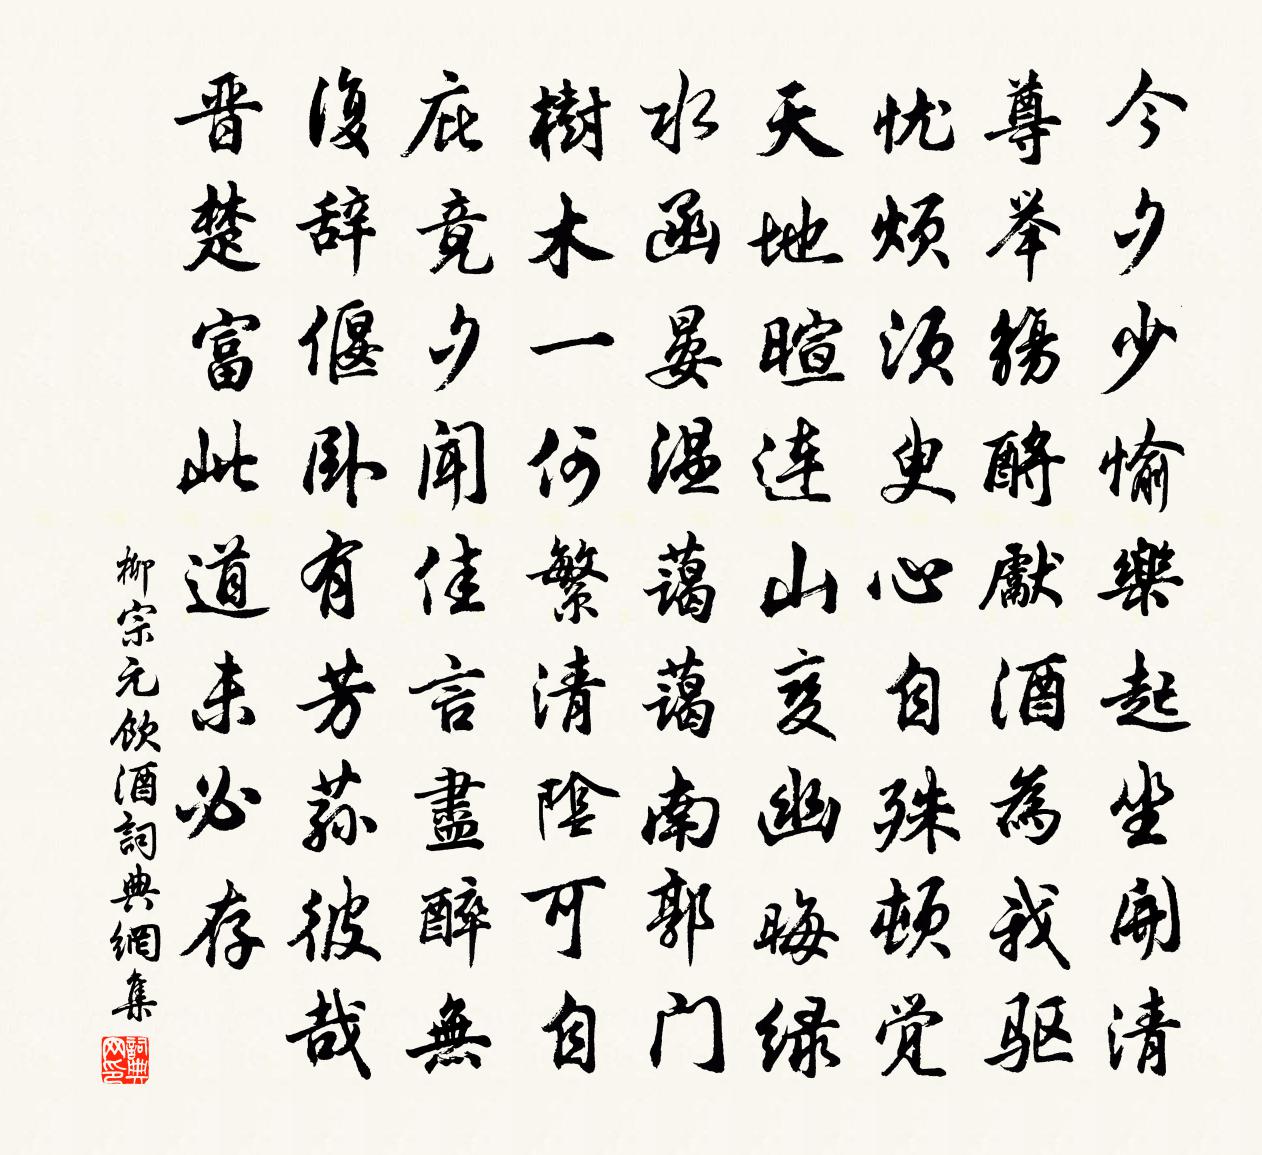 今夕少愉樂起坐開清
尊举觴酹獻酒為我驱
忧烦须臾心自殊顿觉
天地暄連山变幽晦绿
水函晏温藹藹南郭门
樹木一何繁清陰可自
庇竟夕闻佳言盡醉無
復辞偃卧有芳荪彼哉
晋楚富此道未必存
柳宗元飲酒詞典網集
詞典网印